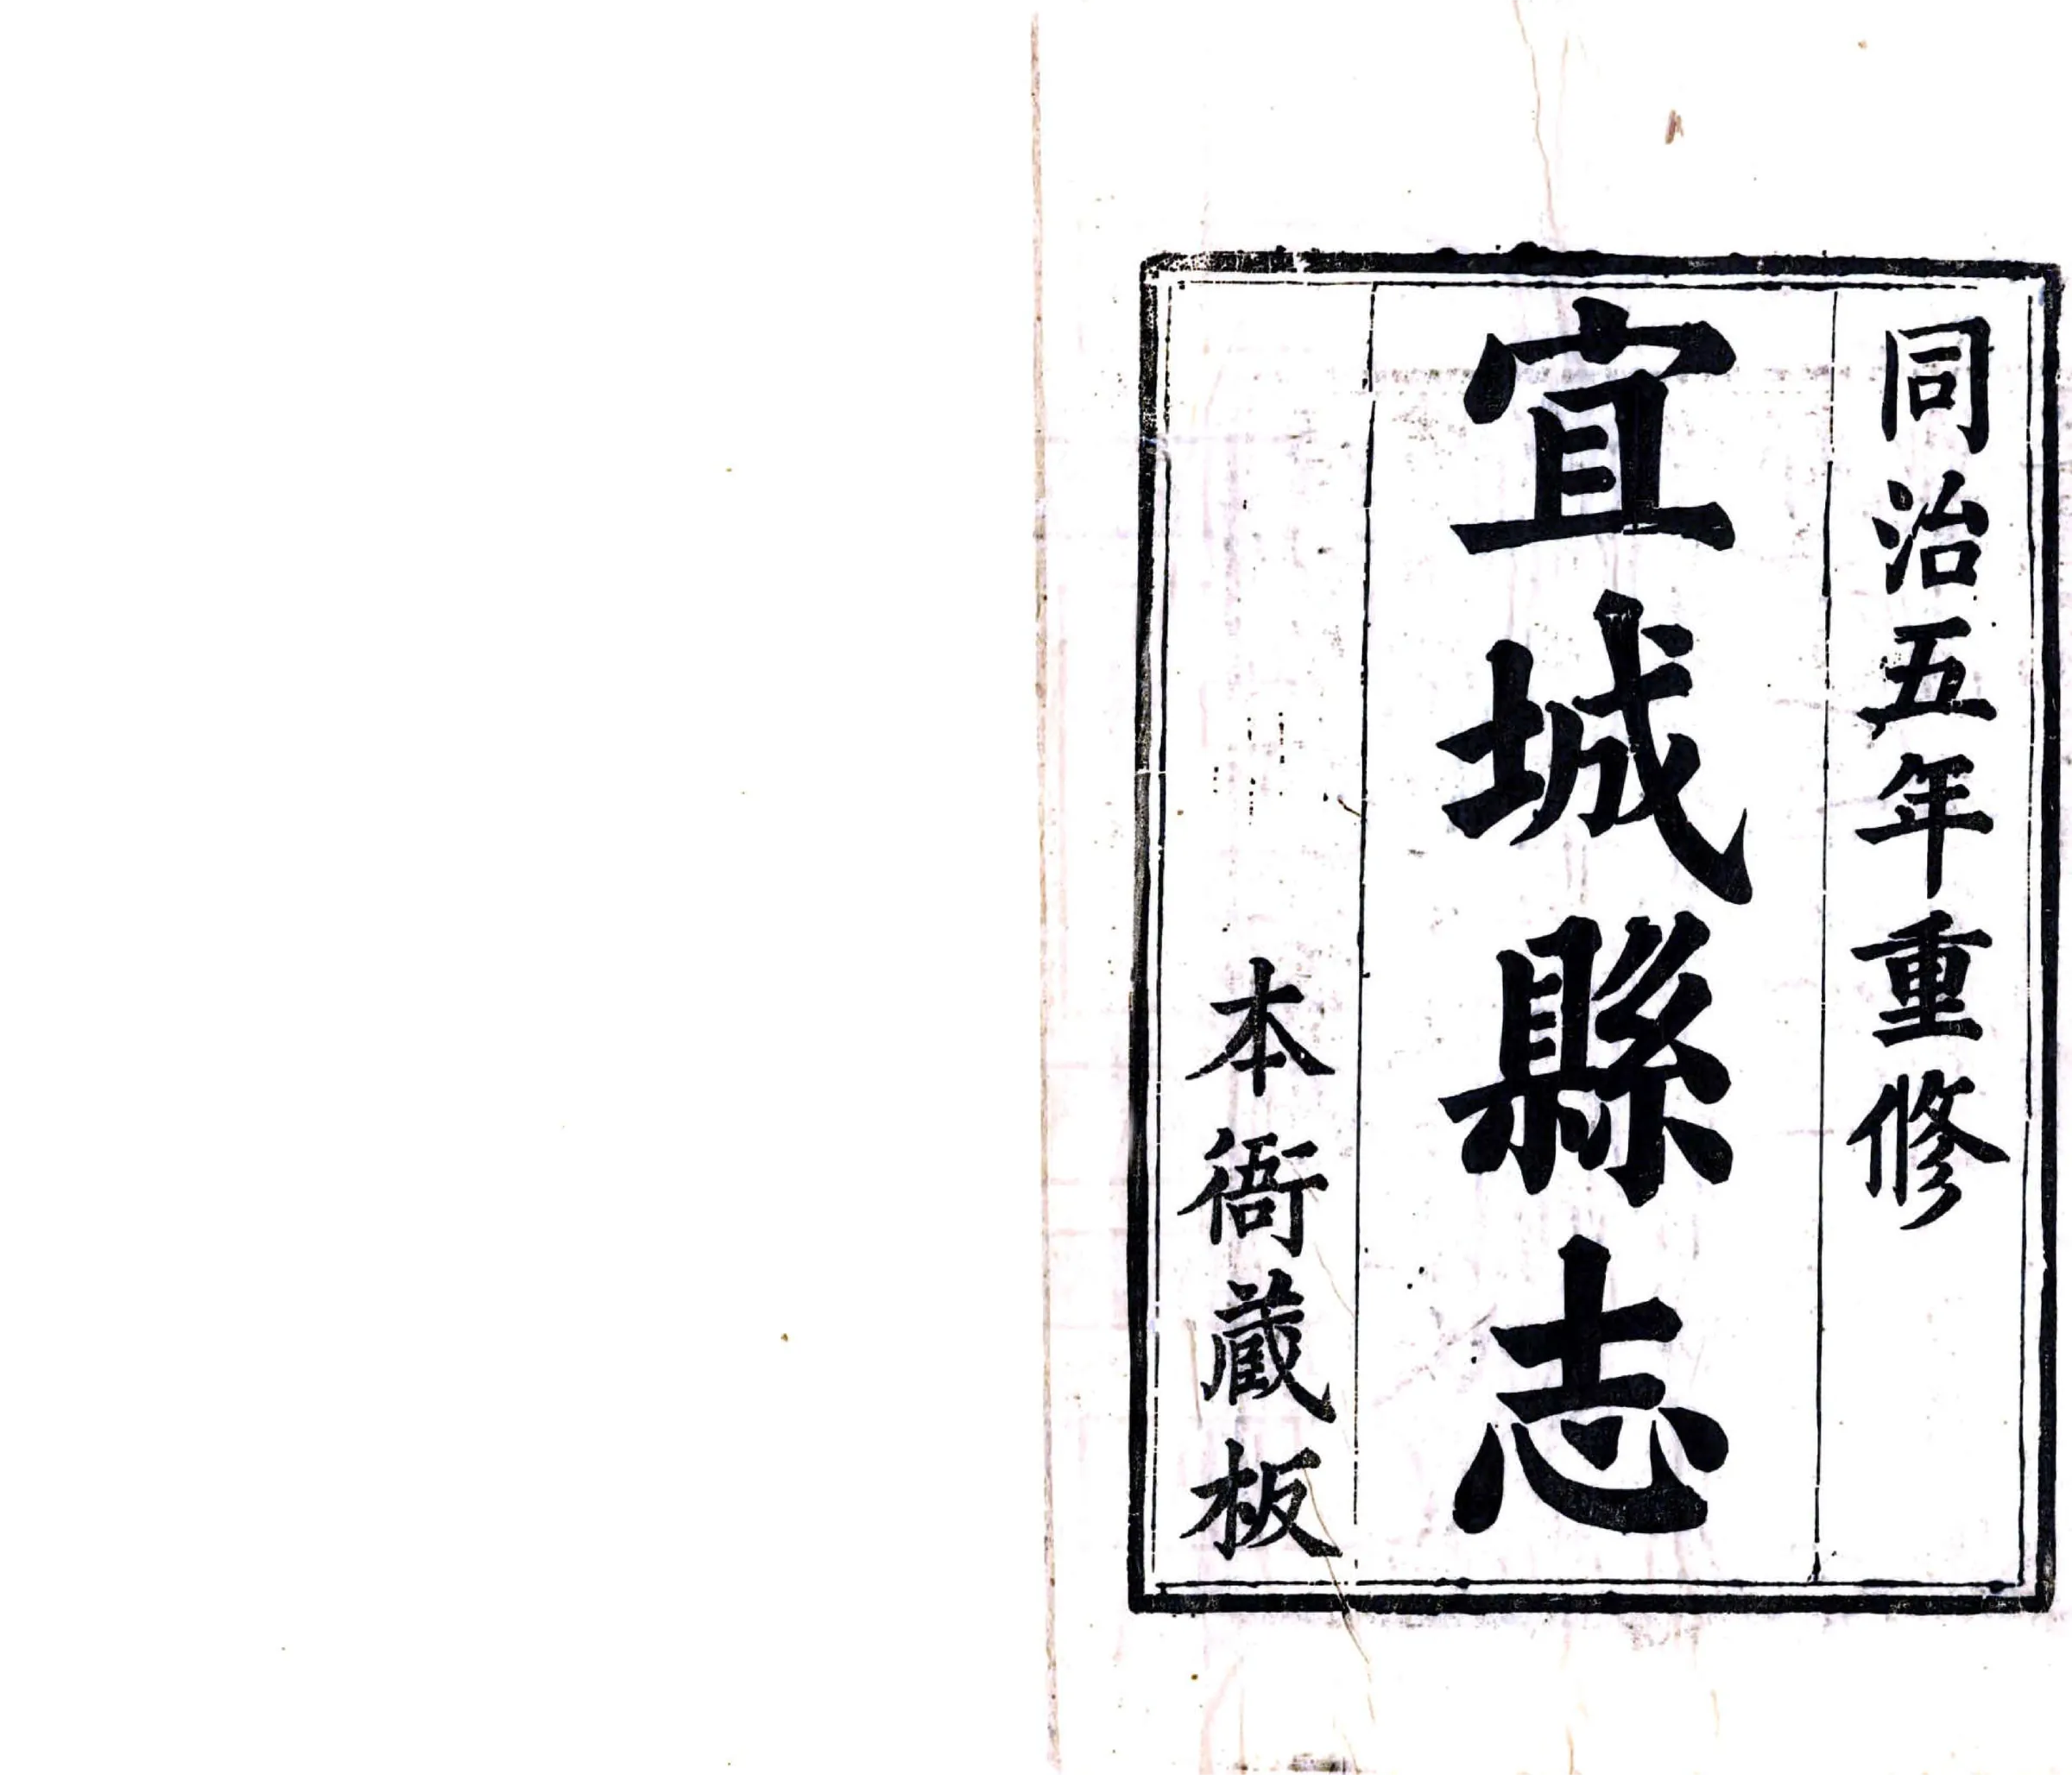 同治五年重修
宜城縣志
本衙藏板